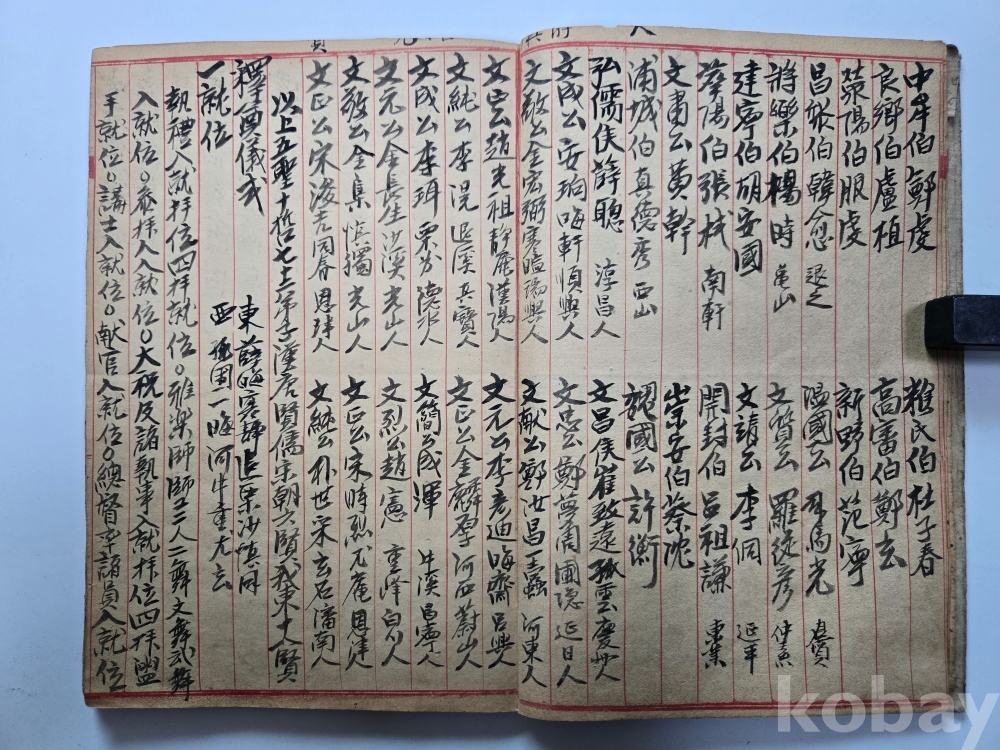 中牟伯鄭虔 緱氏伯杜子春
良鄉伯盧植 高密伯鄭玄
滎陽伯服虔 新野伯范甯
昌黎伯韓愈 退之 溫國公司馬光 君實
將樂伯楊時 龜山 文質公羅從彥 仲素
建寧伯胡安國 文靖公李侗 延平
華陽伯張栻 南軒 開封伯呂祖謙 東萊
文肅公黃幹 崇安伯蔡沈
浦城伯真德秀 西山 魏國公許衡
弘儒侯薛聰 淳昌人 文昌侯崔致遠 孤雲 慶州人
文成公安珦 晦軒 順興人 文忠公鄭夢周 圃隱 延日人
文敬公金宏弼 寒暄 瑞興人 文献公鄭汝昌 一蠹 河東人
文正公趙光祖 靜庵 漢陽人 文元公李彦迪 晦齋 呂興人
文純公李滉 退溪 真寶人 文正公金麟厚 河西 蔚山人
文成公李珥 栗谷 德水人 文簡公成渾 牛溪 昌寧人
文元公金長生 沙溪 光山人 文烈公趙憲 重峰 白川人
文敬公金集 慎獨 光山人 文正公宋時烈 尤庵 恩津人
文正公宋浚吉 同春 恩津人 文純公朴世采 玄石 潘南人
以上五聖十哲七十二弟子漢唐賢儒宋朝六賢我東十八賢
釋奠儀式 東 薛晦寒靜退栗沙慎同
一就位 西 孤圃一晦河牛重尤玄
執禮入就拜位四拜就位○雅樂師師二人二舞文舞武舞
入就位○參拜人入就位○大祝及諸執事入就拜位四拜盥
手就位○講士入就位○献官入就位○總督率諸員入就位
kobay